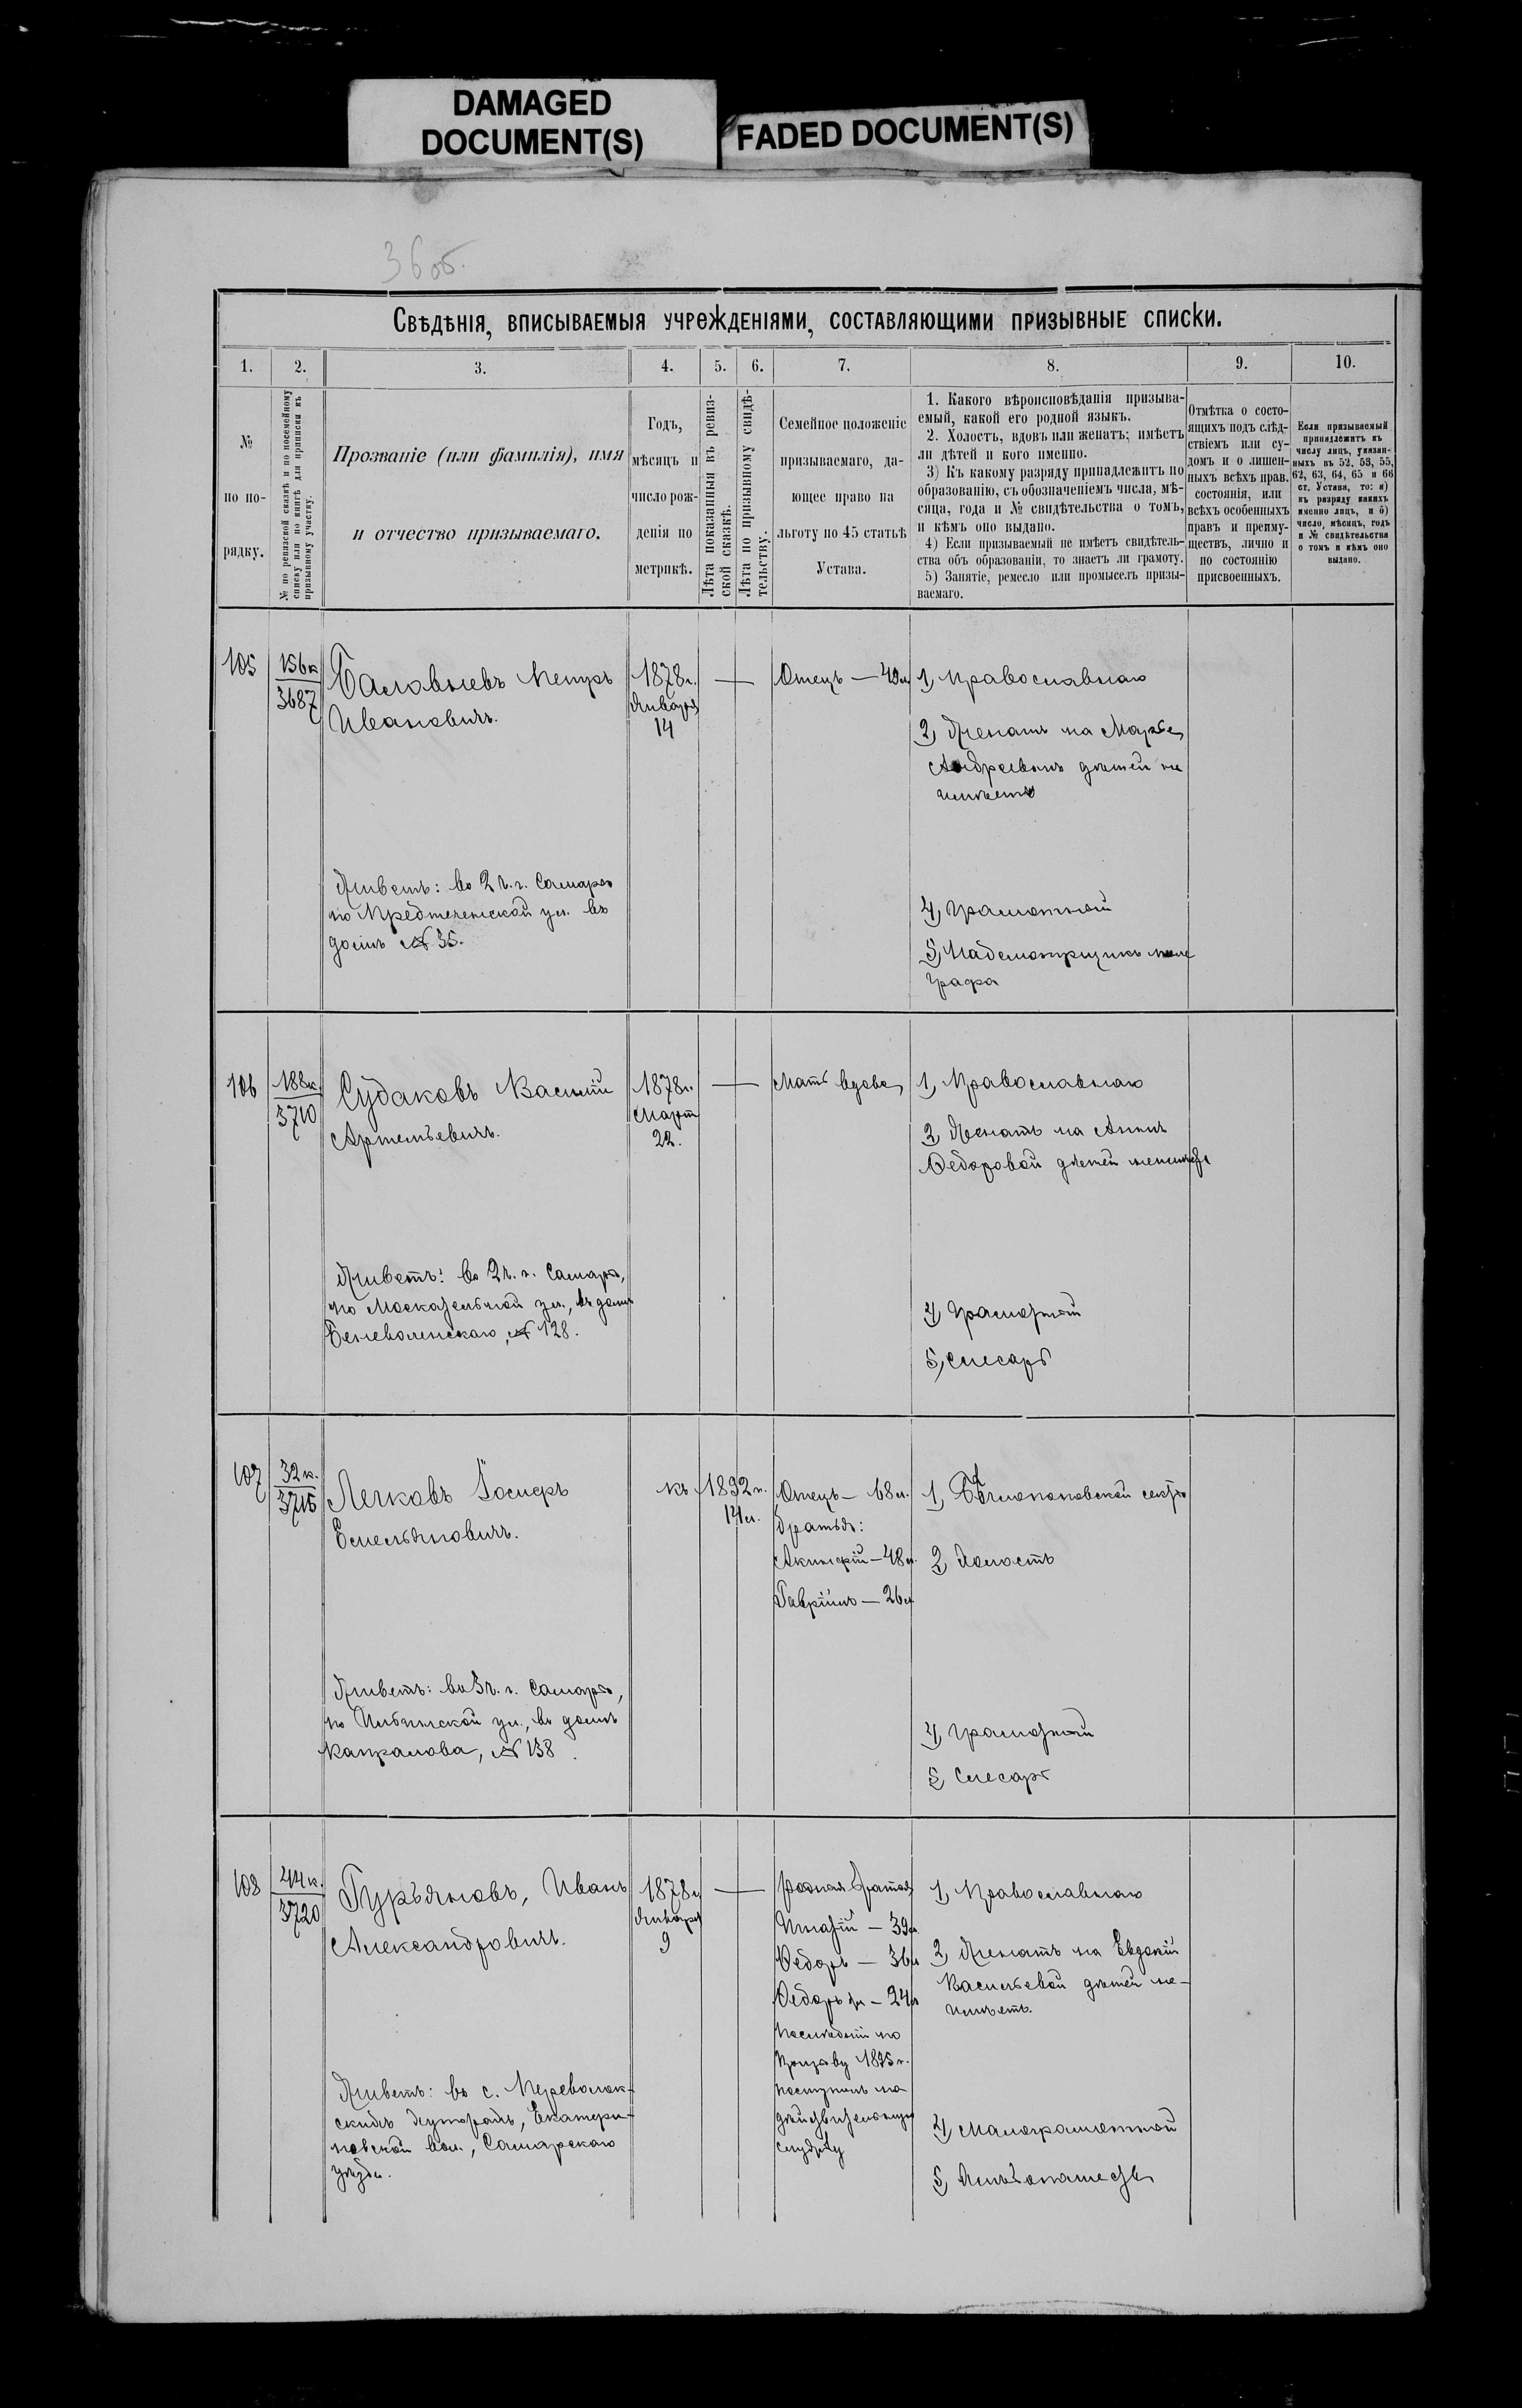 DAMAGED
DOCUMENT(S)
FADED DOCUMENT(S)
36 об.
Свѣдѣнія, вписываемыя учрежденіями, составляющими призывные списки.
1. 2. 3. 4. 5. 6. 7. 8. 9. 10.
№
по по-
рядку.
№ по ревизской сказкѣ и по посемейному
списку или по книгѣ для приписки къ
призывному участку.
Прозваніе (или фамилія), имя
и отчество призываемаго.
Годъ,
мѣсяцъ и
число рож-
денія по
метрикѣ.
Лѣта показанныя въ ревиз-
ской сказкѣ.
Лѣта по призывному свидѣ-
тельству.
Семейное положеніе
призываемаго, да-
ющее право на
льготу по 45 статьѣ
Устава.
1. Какого вѣроисповѣданія призыва-
емый, какой его родной языкъ.
2. Холостъ, вдовъ или женатъ; имѣетъ
ли дѣтей и кого именно.
3) Къ какому разряду принадлежитъ по
образованію, съ обозначеніемъ числа, мѣ-
сяца, года и № свидѣтельства о томъ,
и кѣмъ оно выдано.
4) Если призываемый не имѣетъ свидѣтель-
ства объ образованіи, то знаетъ ли грамоту.
5) Занятіе, ремесло или промыселъ призы-
ваемаго.
Отмѣтка о состо-
ящихъ подъ слѣд-
ствіемъ или су-
домъ и о лишен-
ныхъ всѣхъ прав.
состоянія, или
всѣхъ особенныхъ
правъ и преиму-
ществъ, лично и
по состоянію
присвоенныхъ.
Если призываемый
принадлежитъ къ
числу лицъ, указан-
ныхъ въ 52, 53, 55,
62, 63, 64, 65 и 66
ст. Устава, то: а)
къ разряду какихъ
именно лицъ, и б)
число, мѣсяцъ, годъ
и № свидѣтельства
о томъ и кѣмъ оно
выдано.
105
156 к
3687
Петръ
Ивановичъ.
1878 г.
Января
14
—
Отецъ — 49 л
1, Православнаго
2, Женатъ на Марѳе
Андреевнѣ дѣтей не
имѣетъ
4, Грамотный
5, Надсмотрщикъ теле
графа
Живетъ: во 2 ч. г. Самары
по Предтеченской ул. въ
домѣ № 35.
106
188 к.
3710
Судаковъ Василій
Артемьевичъ.
1878 г.
Март
22.
—
Мать вдова
1, Православнаго
2, Женатъ на Аннѣ
Федоровой дѣтей неимѣетъ
4, Грамотный
5, Слесарь
Живетъ: во 2 ч. г. Самары,
по Москательной ул., въ домѣ
Беневоленскаго, № 128.
107
32 к.
3715
Легковъ Іосифъ
Емельяновичъ.
къ 1892 г.
14 л.
Отецъ — 68 л.
братья:
Акинфій — 48 л.
Гавріилъ — 26 л
1, Бѣглопоповской секты
2, Холостъ
4, Грамотный
5, Слесарь
Живетъ: во 3 ч. г. Самары,
по Ильинской ул., въ домѣ
Капралова, № 138.
108
44 к.
3720
Гурьяновъ, Иванъ
Александровичъ.
1878 г
Января
9
—
родная братья
Игнатій — 39 л
Федоръ — 36 л
Федоръ 2й — 24 л
Последній по
призыву 1895 г.
поступилъ на
дѣйствительную
службу
1, Православнаго
2, Женатъ на Евдокіи
Васильевой дѣтей не-
имѣетъ.
4, Малограмотный
5, Хлѣбопашество
Живетъ: въ с. Переволок-
скихъ хуторахъ, Екатери-
новской вол., Самарскаго
уѣзда.